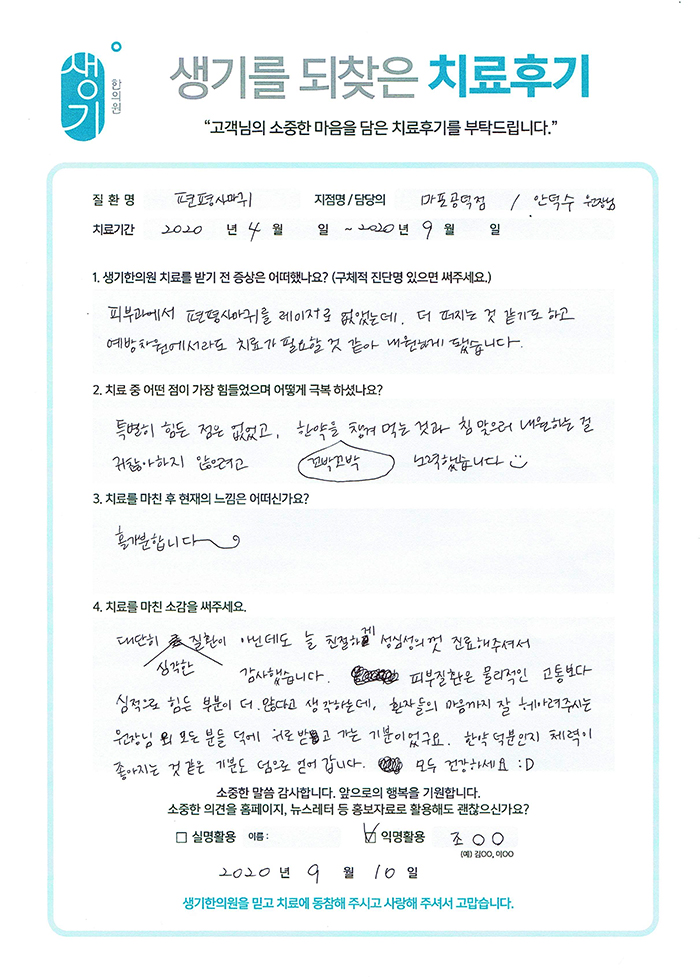 생기
한의원
생기를 되찾은 치료후기
“고객님의 소중한 마음을 담은 치료후기를 부탁드립니다.”
질 환 명 편평사마귀 지점명 / 담당의 마포공덕점 / 안덕수 원장님
치료기간 2020 년 4 월 일 ~ 2020 년 9 월 일
1. 생기한의원 치료를 받기 전 증상은 어떠했나요? (구체적 진단명 있으면 써주세요.)
피부과에서 편평사마귀를 레이저로 없앴는데, 더 퍼지는 것 같기도 하고
예방차원에서라도 치료가 필요할 것 같아 내원하게 됐습니다.
2. 치료 중 어떤 점이 가장 힘들었으며 어떻게 극복 하셨나요?
특별히 힘든 점은 없었고, 한약을 챙겨 먹는 것과 침 맞으러 내원하는 걸
귀찮아하지 않으려고 꼬박꼬박 노력했습니다
3. 치료를 마친 후 현재의 느낌은 어떠신가요?
홀가분합니다~
4. 치료를 마친 소감을 써주세요.
대단히 심각한 질환이 아닌데도 늘 친절하게 성심성의껏 진료해주셔서
감사했습니다. 피부질환은 물리적인 고통보다
심적으로 힘든 부분이 더 많다고 생각하는데, 환자들의 마음까지 잘 헤아려주시는
원장님 외 모든 분들 덕에 위로 받고 가는 기분이었구요. 한약 덕분인지 체력이
좋아지는 것 같은 기분도 덤으로 얻어 갑니다. 모두 건강하세요 :D
소중한 말씀 감사합니다. 앞으로의 행복을 기원합니다.
소중한 의견을 홈페이지, 뉴스레터 등 홍보자료로 활용해도 괜찮으신가요?
□ 실명활용 이름 : ☑ 익명활용 조 ○ ○
(예) 김OO, 이OO
2020 년 9 월 10 일
생기한의원을 믿고 치료에 동참해 주시고 사랑해 주셔서 고맙습니다.